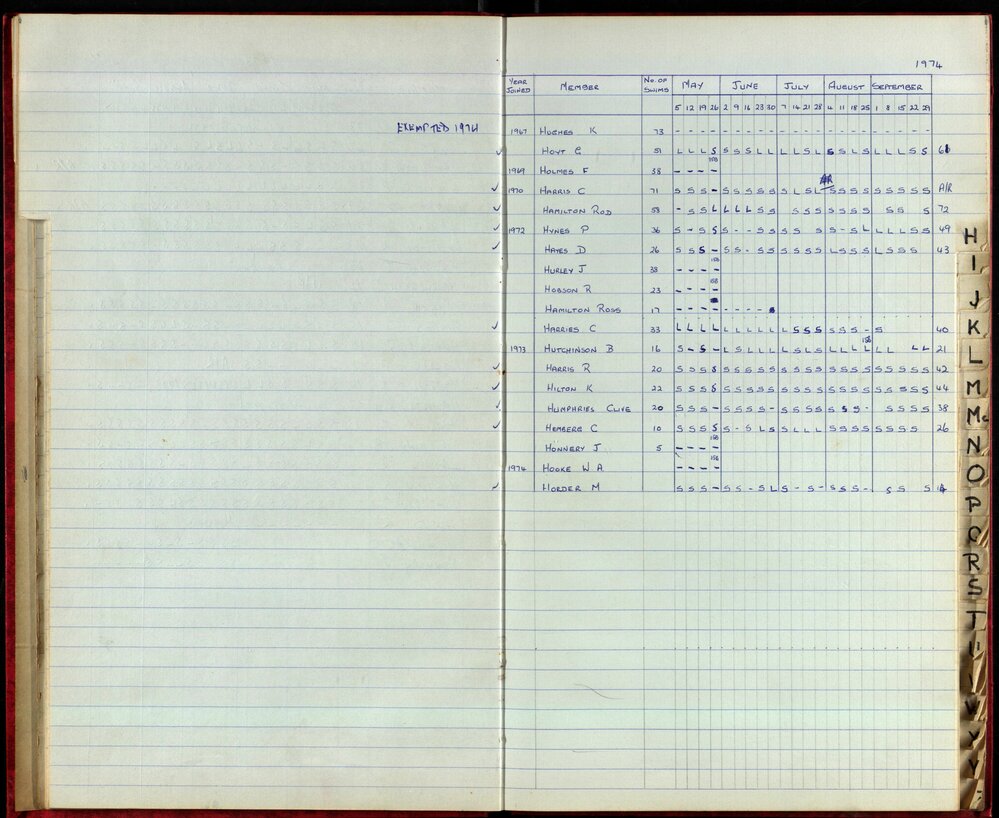 1974
YEAR JOINED MEMBER No. OF SWIMS MAY JUNE JULY AUGUST SEPTEMBER
5 12 19 26 2 9 16 23 30 7 14 21 28 4 11 18 25 1 8 15 22 29
EXEMPTED 1974 1967 HUGHES K 73 - - - - - - - - - - - - - - - - - - - - - -
HOYT G 51 L L L S S S S L L L L S L S S L S L L L S S
1969 HOLMES F 38 - - - -
1970 HARRIS C 71 S S S - S S S S S S L S L S S S S S S S S S A/R
HAMILTON ROD 58 - S S L L L L S S S S S S S S S S S S 72
1972 HYNES P 36 S - S S S - - S S S S S S - S L L L L S S 49
HAYES D 26 S S S - S S - S S S S S S L S S S L S S S 43
HURLEY J 38 - - - -
HOBSON R 23 - - - -
HAMILTON ROSS 17 - - - - - - - -
HARRIES C 33 L L L L L L L L L L S S S S S S - S 40
1973 HUTCHINSON B 16 S - S - L S L L L L S L S L L L L L L L L 21
HARRIS R 20 S S S S S S S S S S S S S S S S S S S S S S 42
HILTON K 22 S S S S S S S S S S S S S S S S S S S S S S 44
HUMPHRIES CLIVE 20 S S S - S S S S - S S S S S S S - S S S S 38
HEMBERG C 10 S S S S S - S L S S L L L S S S S S S S S 26
HONNERY J 5 - - - -
1974 HOOKE W A - - - -
HORDER M S S S - S S - S L S - S - S S S - S S S
H
I
J
K
L
M
Mc
N
O
P
R
S
T
W